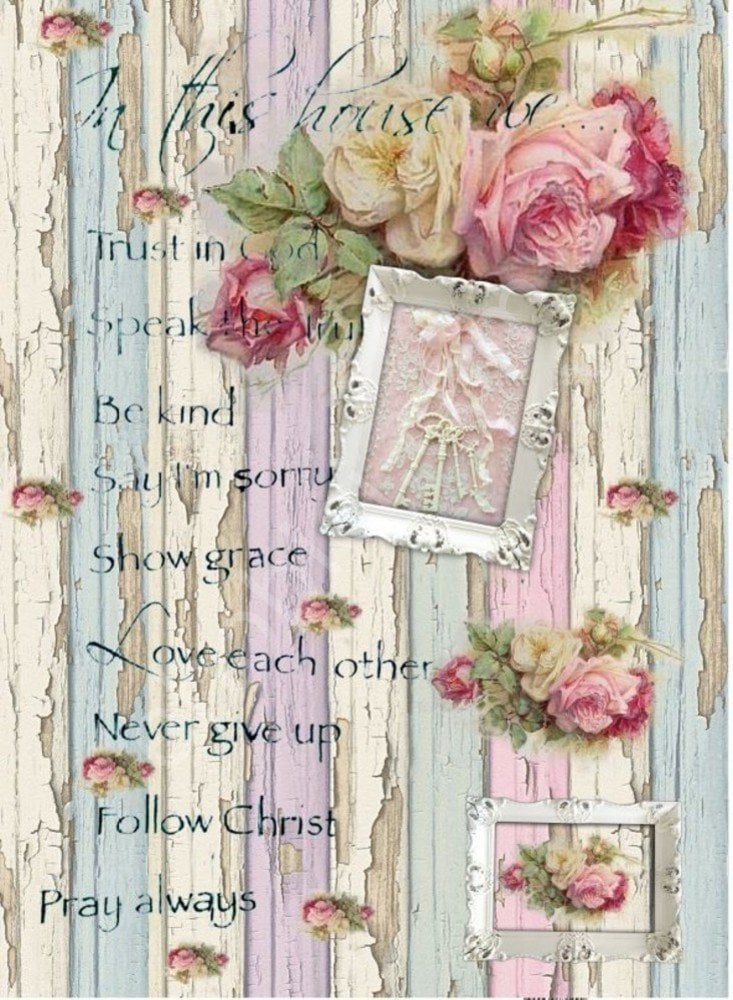 In this house we....
Trust in God
Speak the Trut
Be kind
Say I'm sorry
Show grace
Love each other
Never give up
Follow Christ
Pray always